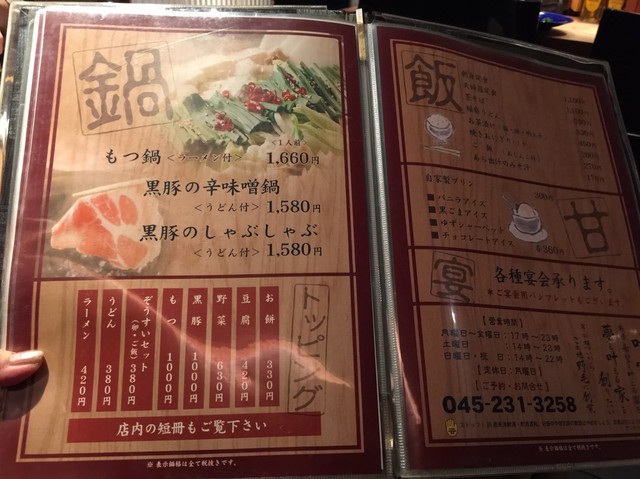 鍋
<1人前>
もつ鍋 <ラーメン付> 1,660円
黒豚の辛味噌鍋
<うどん付> 1,580円
黒豚のしゃぶしゃぶ
<うどん付> 1,580円
トッピング
お餅 330円
豆腐 420円
野菜 630円
黒豚 1000円
もつ 1000円
ぞうすいセット (卵・ご飯) 380円
うどん 380円
ラーメン 420円
店内の短冊もご覧下さい
※表示価格は全て税抜きです。
飯
自家製プリン 300円
■バニラアイス
■黒ごまアイス
■ゆずシャーベット
■チョコレートアイス
各360円
甘
宴
各種宴会承ります。
※ご宴会用パンフレットもございます。
【営業時間】
月曜日〜金曜日:17時〜23時
土曜日 :14時〜23時
日曜日・祝 日:14時〜22時
【定休日:月曜日】
【ご予約・お問合せ】
045-231-3258
※表示価格は全て税抜きです。